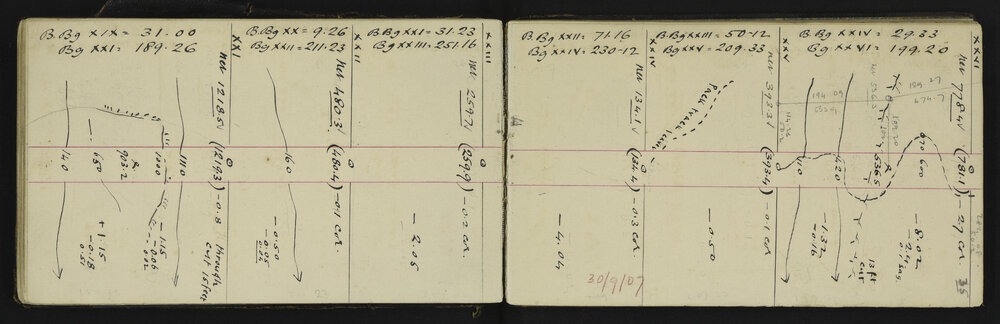 B.Bg XIX = 31.00
Bg XXI = 189.26
XXI
B.Bg XX = 9.26
Bg XXII = 211.23
XXII
B.Bg XXI = 31.23
Bg XXIII = 251.16
XXIII
Hor 1218.5
(1219.3) - 0.8
through
cut 15 feet
140
650
903.2
1000
1110
+ 1.15
- 0.18
0.57
- 1.15
- 0.06
Hor 480.3
(480.4) - 0.1 cor.
160
- 0.50
- 0.05
Hor 259.7
(259.9) - 0.2 cor.
- 2.05
B.Bg XXII = 71.16
Bg XXIV = 230.12
XXIV
B.Bg XXIII = 50.12
Bg XXV = 209.33
XXV
B.Bg XXIV = 29.33
Bg XXVI = 199.20
XXVI
Hor 134.1
(134.4) - 0.3 cor.
- 4.04
30/9/07
Pack track
Hor 393.3
(393.4) - 0.1 cor
- 0.50
Hor 778.4
(781.1) - 2.7 cor.
194.09
189.27
474.7
420
536.5
600
670
- 1.32
- 0.16
13 ft
cut
- 8.02
35